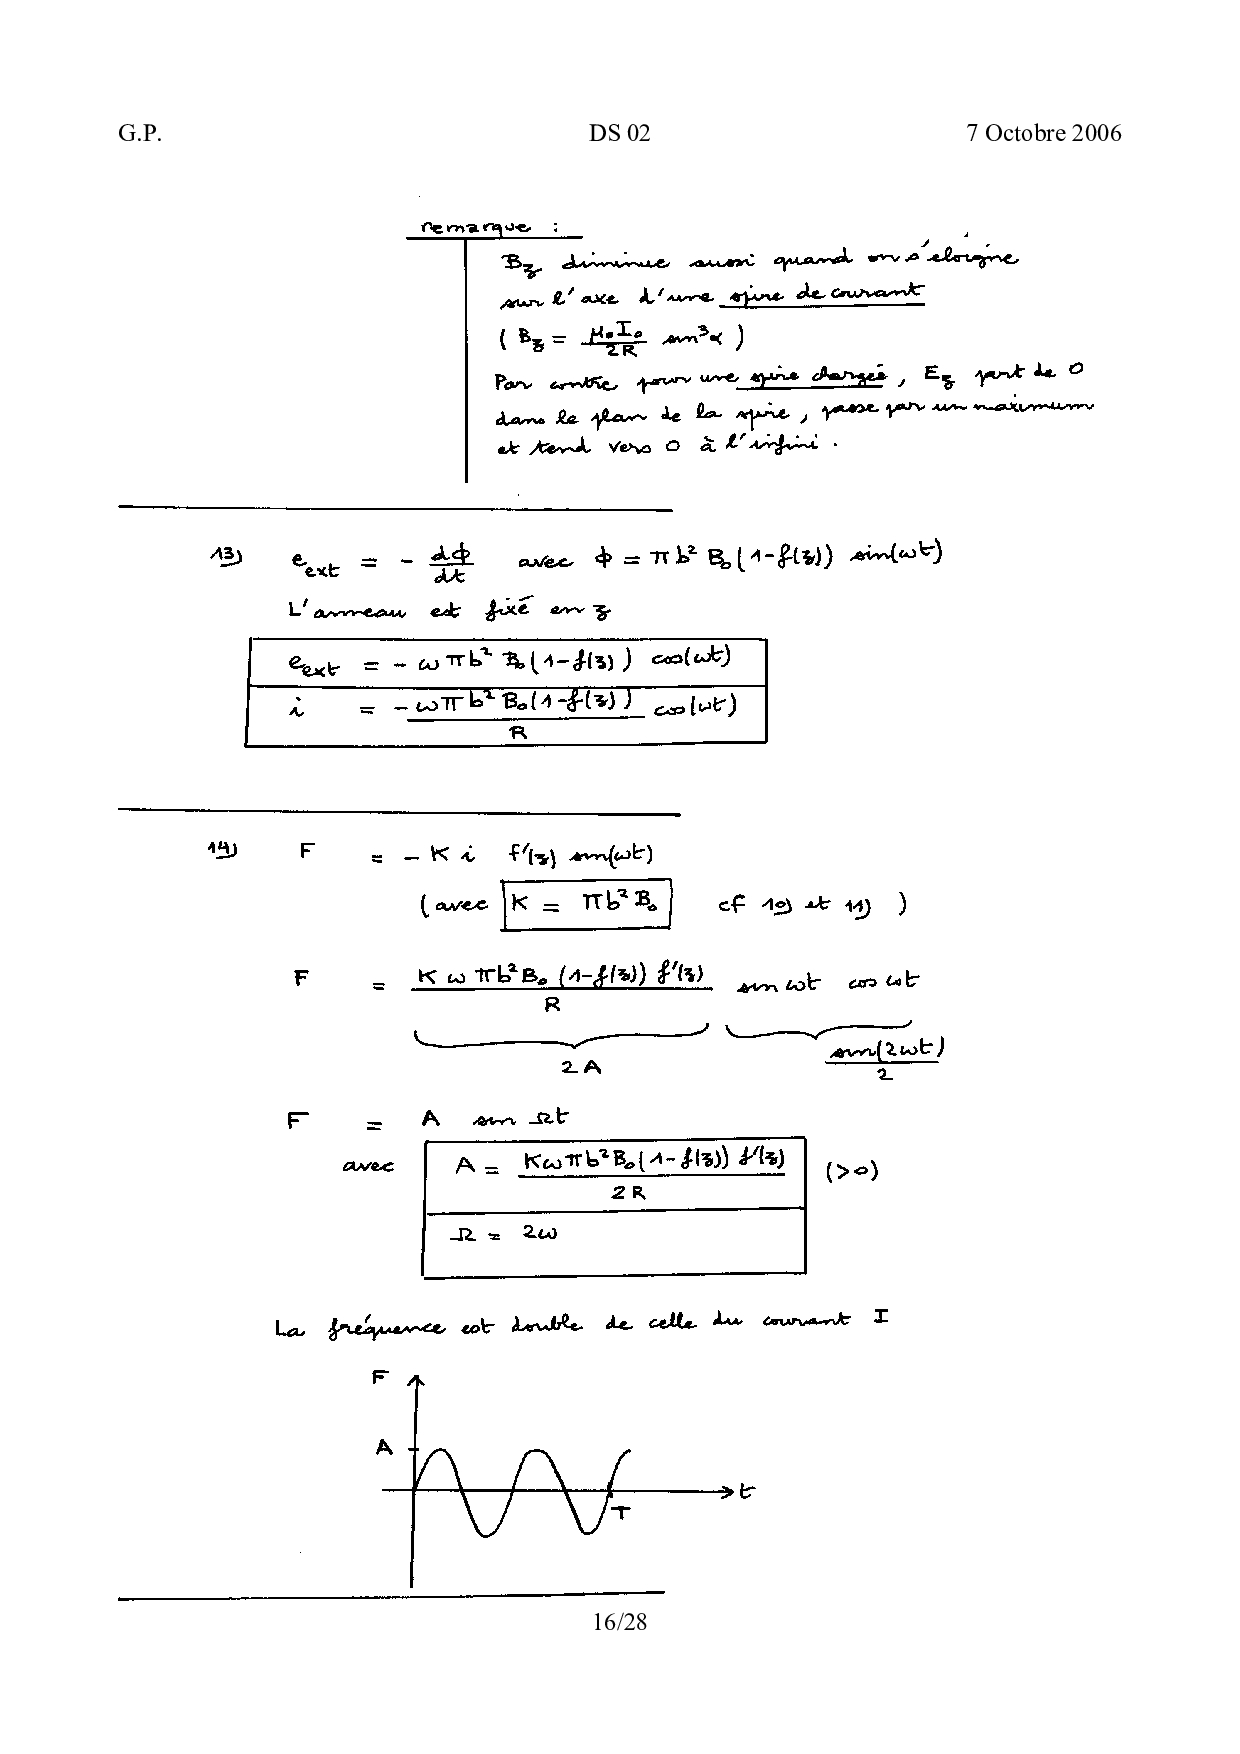 G.P. DS 02 7 Octobre 2006
remarque :
B_z diminue aussi quand on s'éloigne
sur l'axe d'une spire de courant
( B_z = μ₀I₀/2R sin³α )
Par contre pour une spire chargée, E_z part de 0
dans le plan de la spire, passe par un maximum
et tend vers 0 à l'infini.
13) e_ext = - dϕ/dt avec ϕ = πb² B₀(1-f(z)) sin(ωt)
L'anneau est fixé en z
e_ext = - ωπb² B₀(1-f(z)) cos(ωt)
i = - ωπb² B₀(1-f(z))/R cos(ωt)
14) F = - K i f'(z) sin(ωt)
(avec K = πb²B₀ cf 10) et 11) )
F = Kωπb²B₀(1-f(z)) f'(z)/R sin ωt cos ωt
2A sin(2ωt)/2
F = A sin Ωt
avec A = Kωπb²B₀(1-f(z)) f'(z)/2R (>0)
Ω = 2ω
La fréquence est double de celle du courant I
F
A
t
T
16/28